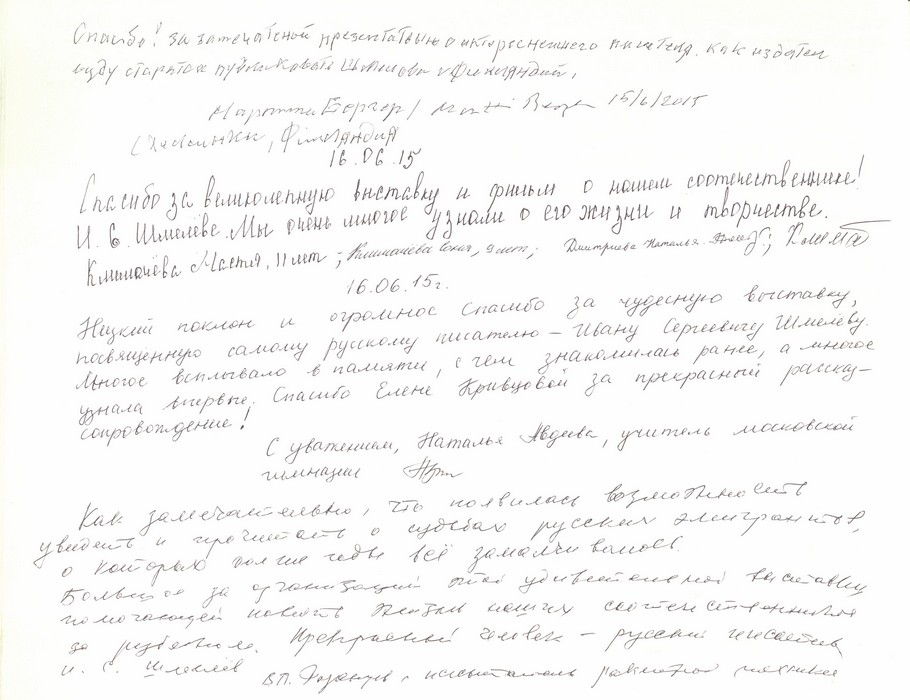 Спасибо! за замечатеной презентатвыю интереснейшего писателя. Как издатель
буду стараться публиковать Шмелова в Финляндий.
Мартти Бергер / 15/6/2015
Хельсинки, Финляндия
16.06.15
Спасибо за великолепную выставку и фильм о нашем соотечественнике!
И. С. Шмелёве. Мы очень многое узнали о его жизни и творчестве.
Климачёва Настя, 11 лет; Климачёва Соня, 9 лет; Дмитриева Наталья
16.06.15г.
Низкий поклон и огромное спасибо за чудесную выставку,
посвященную самому русскому писателю – Ивану Сергеевичу Шмелёву.
Многое всплывало в памяти, с чем знакомилась ранее, а многое
узнала впервые. Спасибо Елене Кривцовой за прекрасный рассказ-
сопровождение!
С уважением, Наталья Авдеева, учитель московской
гимназии
Как замечательно, что появилась возможность
увидеть и прочитать о судьбах русских эмигрантов,
о которых долгие годы всё замалчивалось.
Большое за организаций этой удивительной выставки
помогающей понять жизнь наших соотечественников
за рубежом. Прекрасный человек – русский писатель
И. С. Шмелёв
В.П. испытатель ракетной техники